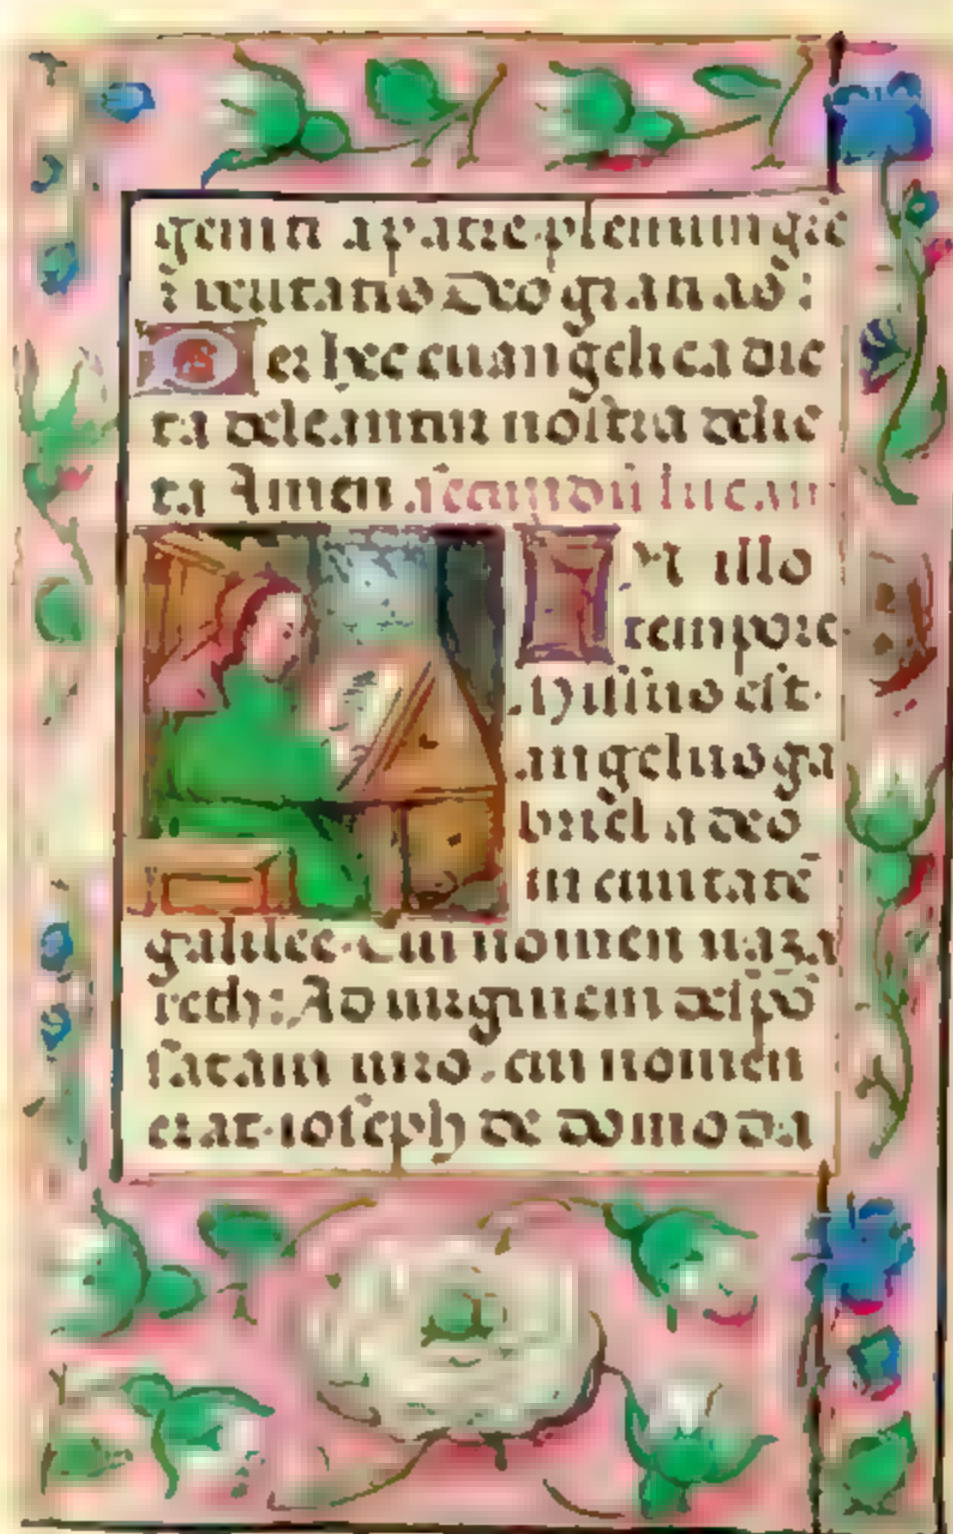 geniti a patre plenum gr̄e
⁊ veritatis Deo gratias :
Per hec euangelica dic
ta deleantur nostra delic
ta Amen . secundū lucam
IN illo
tempore
Missus est
angelus ga
briel a deo
in ciuitatē
galilee. Cui nomen naza
reth: Ad uirginem despō
satam uiro. cui nomen
erat. ioseph de domo da